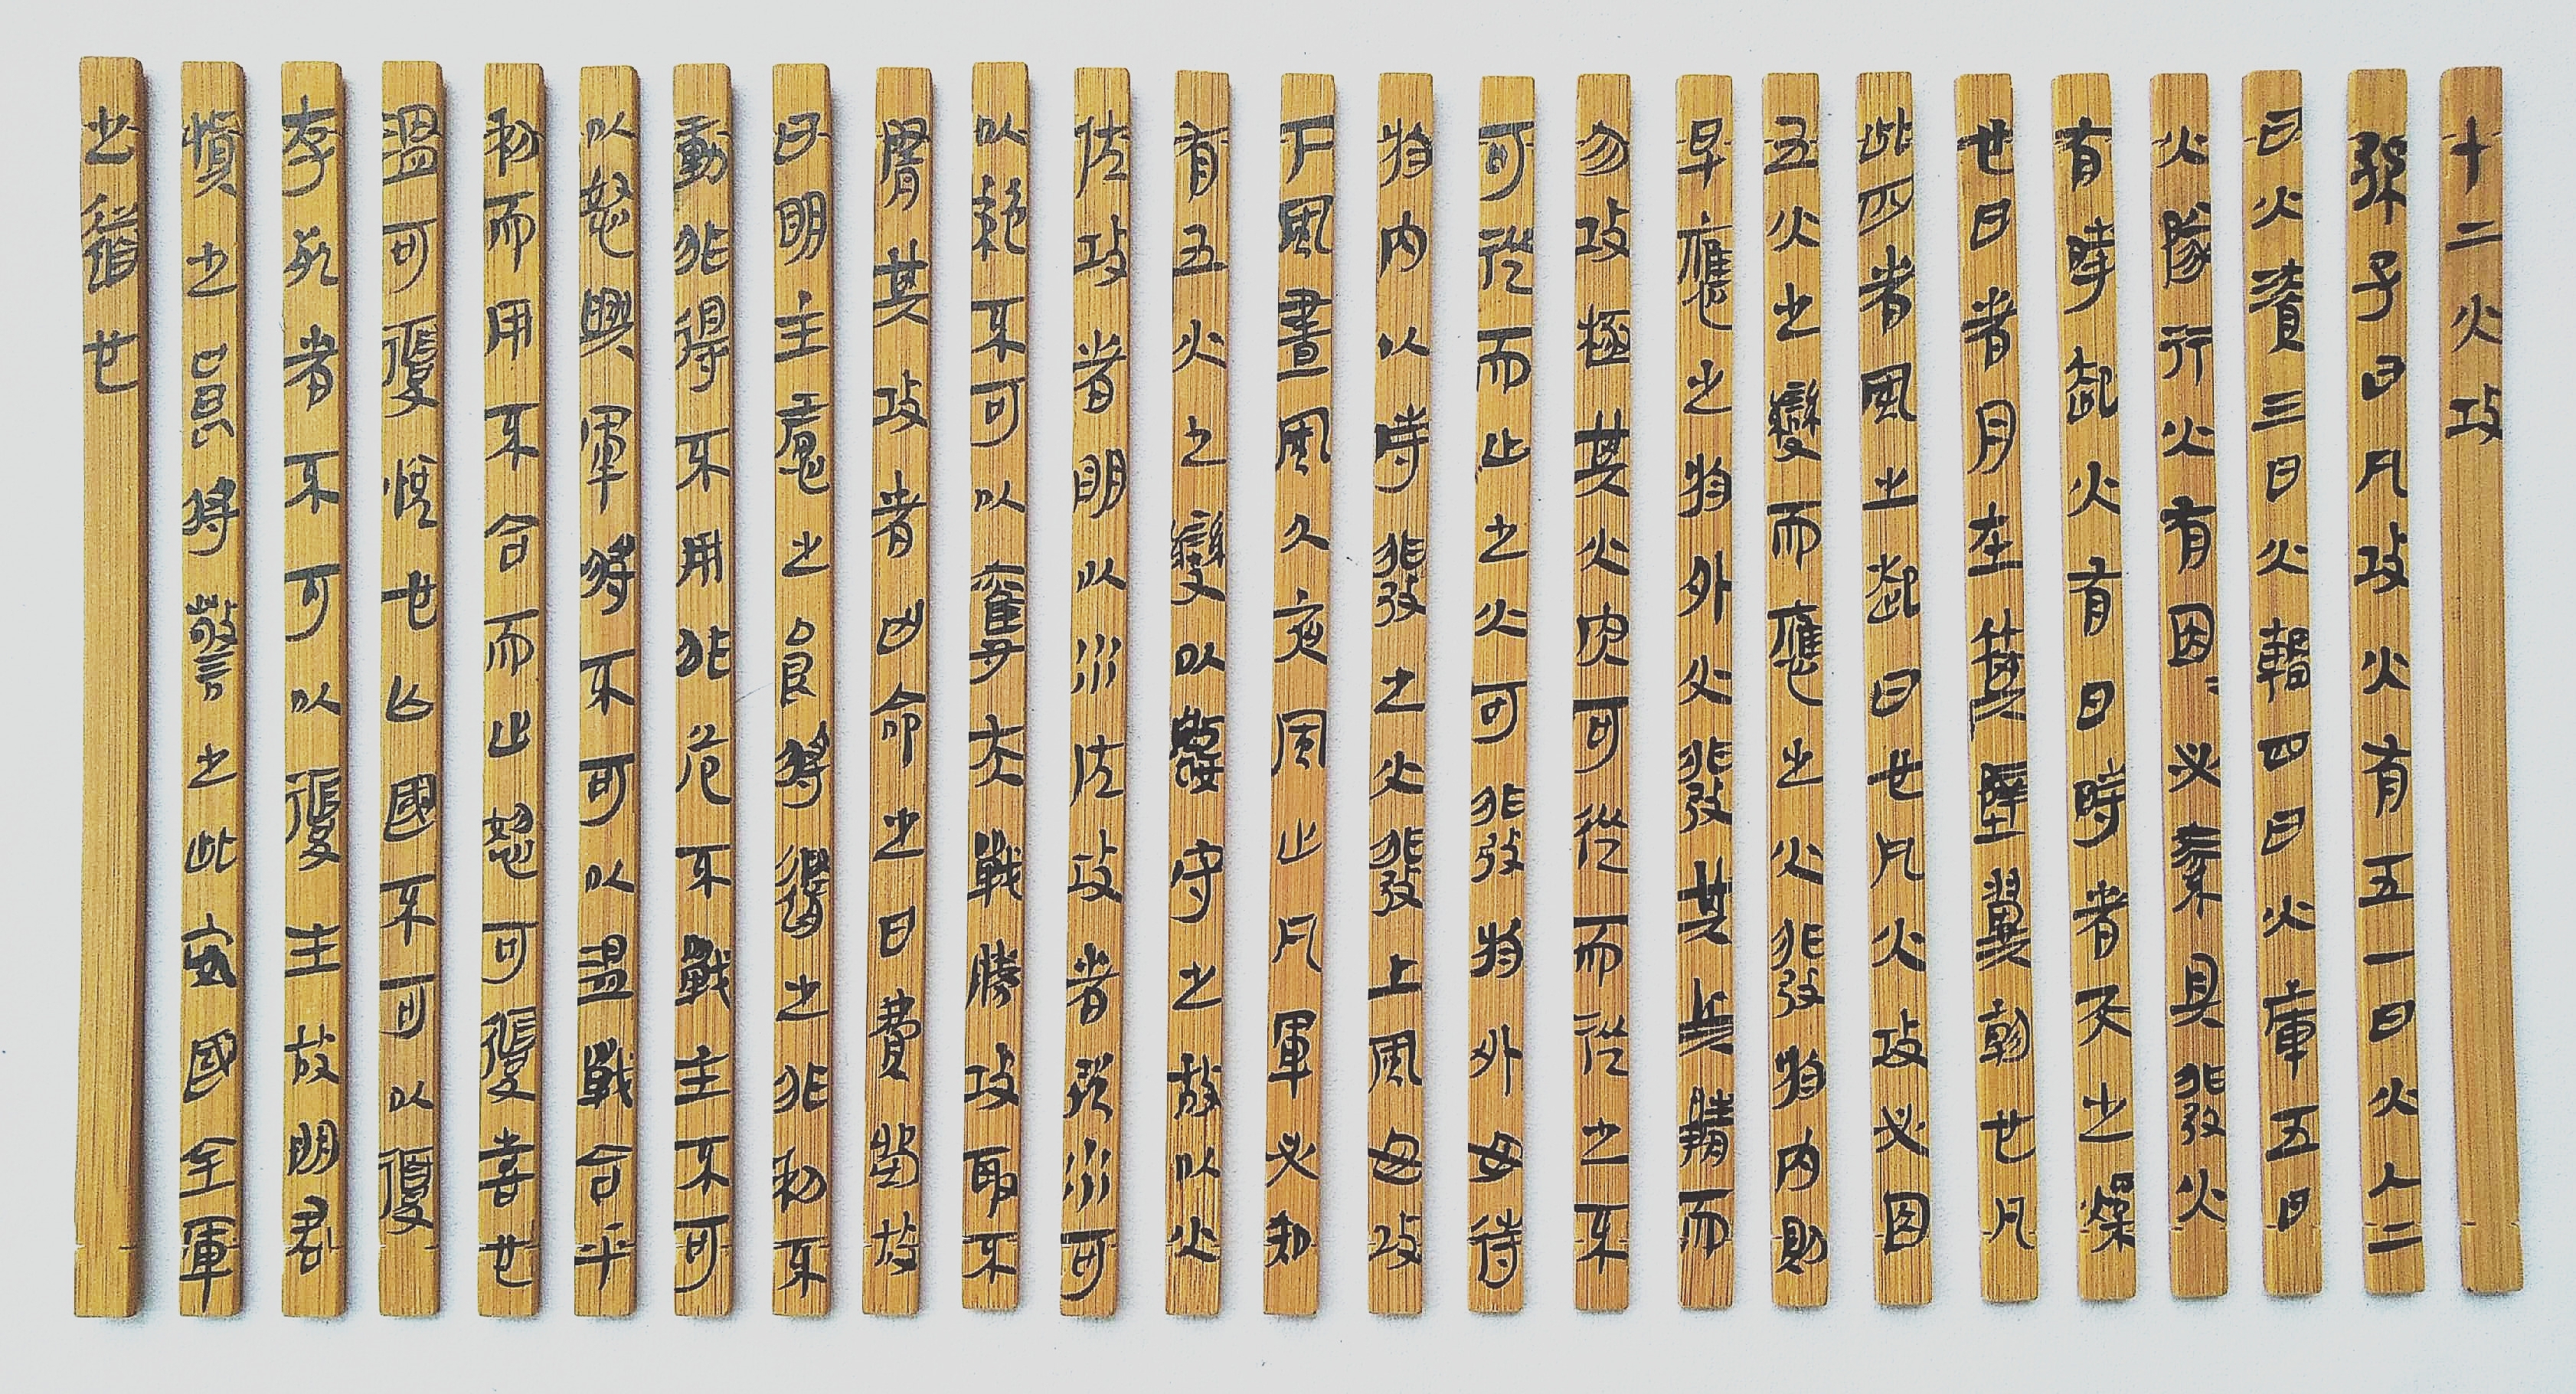 十二火攻
孫子曰凡攻火有五一曰火人二
曰火漬三曰火輜四曰火庫五曰
火隊行火有因必素具發火
有時起火有日時者天之燥
也日者月在箕壁翼軫也凡
此四者風之起日也凡火攻必因
五火之變而應之火發於内則
早應之於外火發其兵靜而
勿攻極其火央可從而從之不
可從而止之火可發於外毋待
於内以時發之火發上風毋攻
下風晝風久夜風止凡軍必知
有五火之變以數守之故以火
佐攻者明以水佐攻者強水可
以絕不可以奪夫戰勝攻取不
隋其攻者凶命之曰費留故
曰明主慮之良將隨之非利不
動非得不用非危不戰主不可
以怒興軍將不可以溫戰合乎
利而用不合而止怒可復喜也
溫可復悅也亡國不可以復
存死者不可以復生故明君
慎之良將警之此安國全軍
之道也